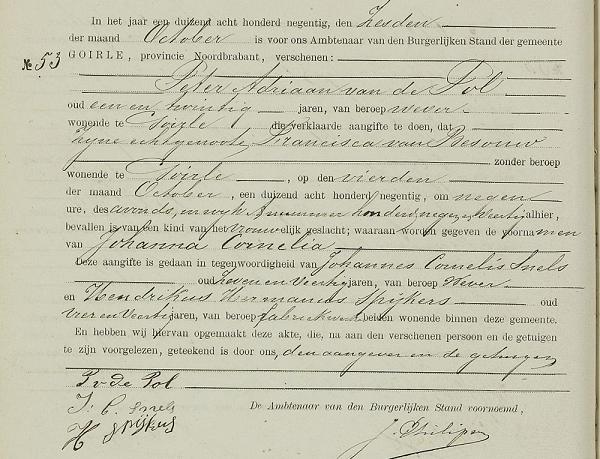 In het jaar een duizend acht honderd negentig, den Zesden
der maand October is voor ons Ambtenaar van den Burgerlijken Stand der gemeente
No 53 GOIRLE, provincie Noordbrabant, verschenen:
Peter Adriaan van de Pol
oud een en twintig jaren, van beroep wever
wonende te Goirle die verklaarde aangifte te doen, dat
zijne echtgenoote, Francisca van Besouw
zonder beroep
wonende te Goirle, op den vierden
der maand October, een duizend acht honderd negentig, om negen
ure, des avonds, in wijk A nummer honderd negen en Veertig alhier,
bevallen is van een kind van het vrouwelijk geslacht; waaraan worden gegeven de voornamen
van Johanna Cornelia
Deze aangifte is gedaan in tegenwoordigheid van Johannes Cornelis Snels
oud Zeven en Veertig jaren, van beroep Wever
en Hendrikus Hermanus Spijkers oud
vier en Veertig jaren, van beroep beiden wonende binnen deze gemeente.
En hebben wij hiervan opgemaakt deze akte, die, na aan den verschenen persoon en de getuigen
te zijn voorgelezen, geteekend is door ons, den aangever en de getuigen
P v de Pol
J. C. Snels
De Ambtenaar van den Burgerlijken Stand voornoemd,
H Spijkers
J. Philipsen